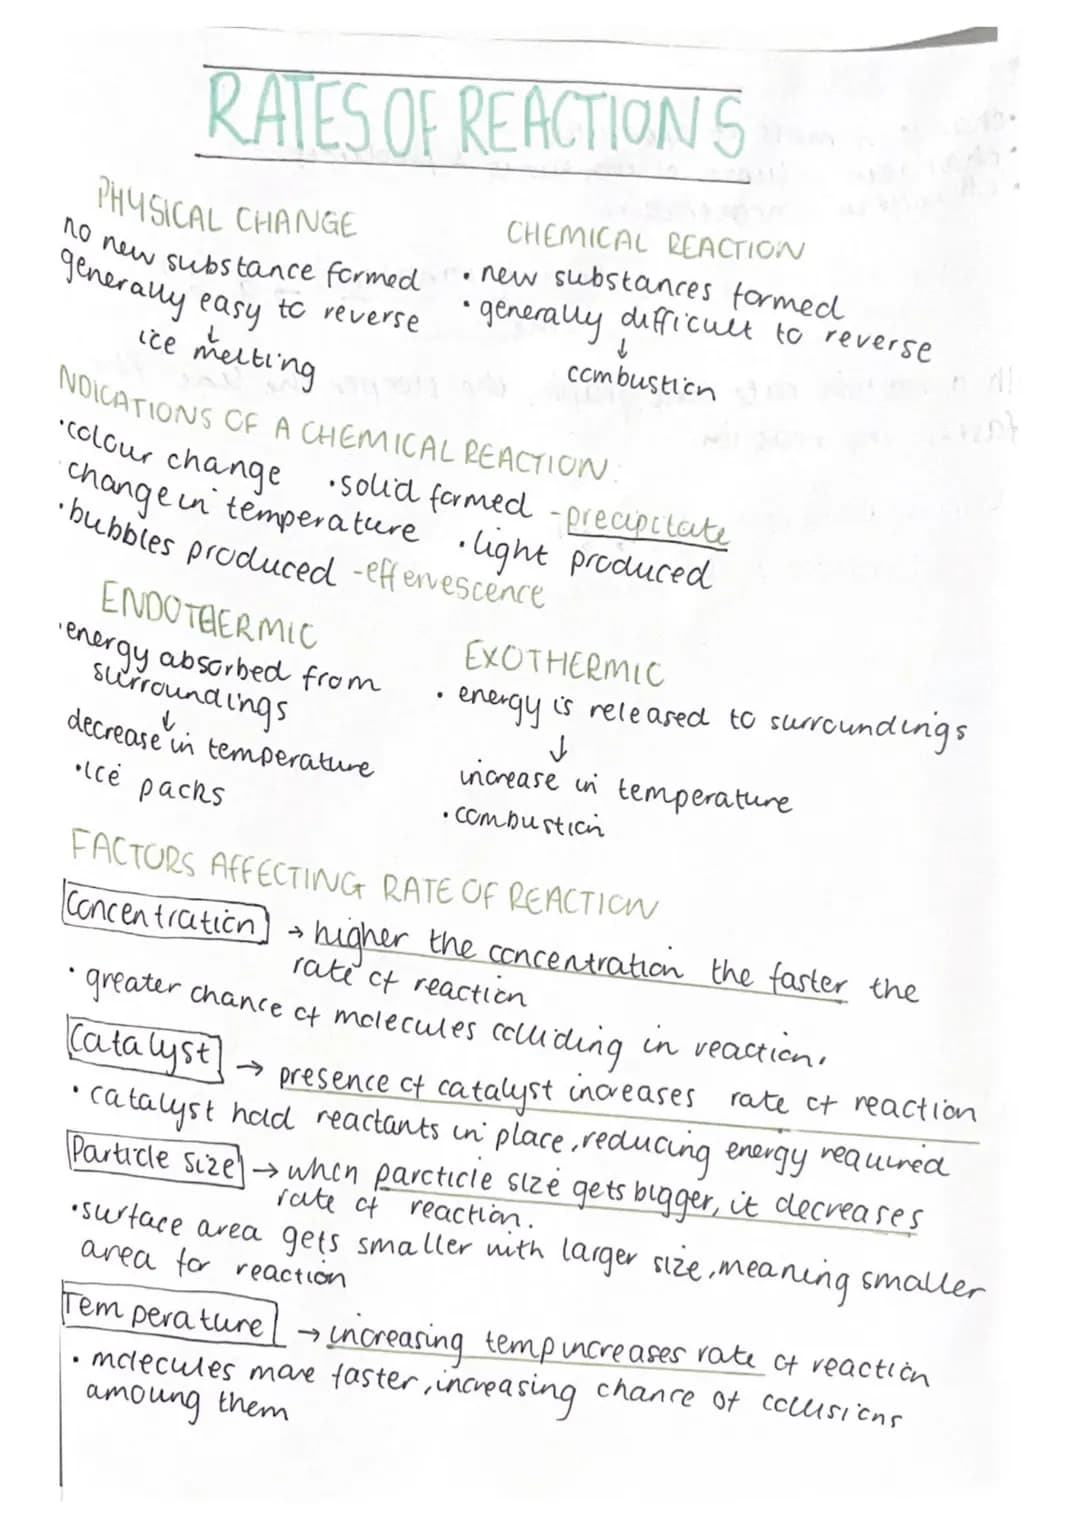 RATES OF REACTIONS
PHYSICAL CHANGE
no new substance formed
generally easy to reverse
↓
ice melting
CHEMICAL REACTION
• new substances formed
• generally difficult to reverse
↓
combustion
NDICATIONS OF A CHEMICAL REACTION:
•colour change •solid formed -precipitate
change in temperature •light produced
•bubbles produced -effervescence
ENDOTHERMIC
•energy absorbed from
surroundings
↓
decrease in temperature
•ice packs
EXOTHERMIC
• energy is released to surroundings
↓
increase in temperature
•combustion
FACTORS AFFECTING RATE OF REACTION
Concentration → higher the concentration the faster the
rate of reaction
• greater chance of molecules colliding in reaction.
Catalyst → presence of catalyst increases rate of reaction
• catalyst hold reactants in place, reducing energy required
Particle Size → when parcticle size gets bigger, it decreases
rate of reaction.
•surface area gets smaller with larger size, meaning smaller
area for reaction
Temperature → increasing temp increases rate of reaction
• molecules move faster, increasing chance of collisions
amoung them